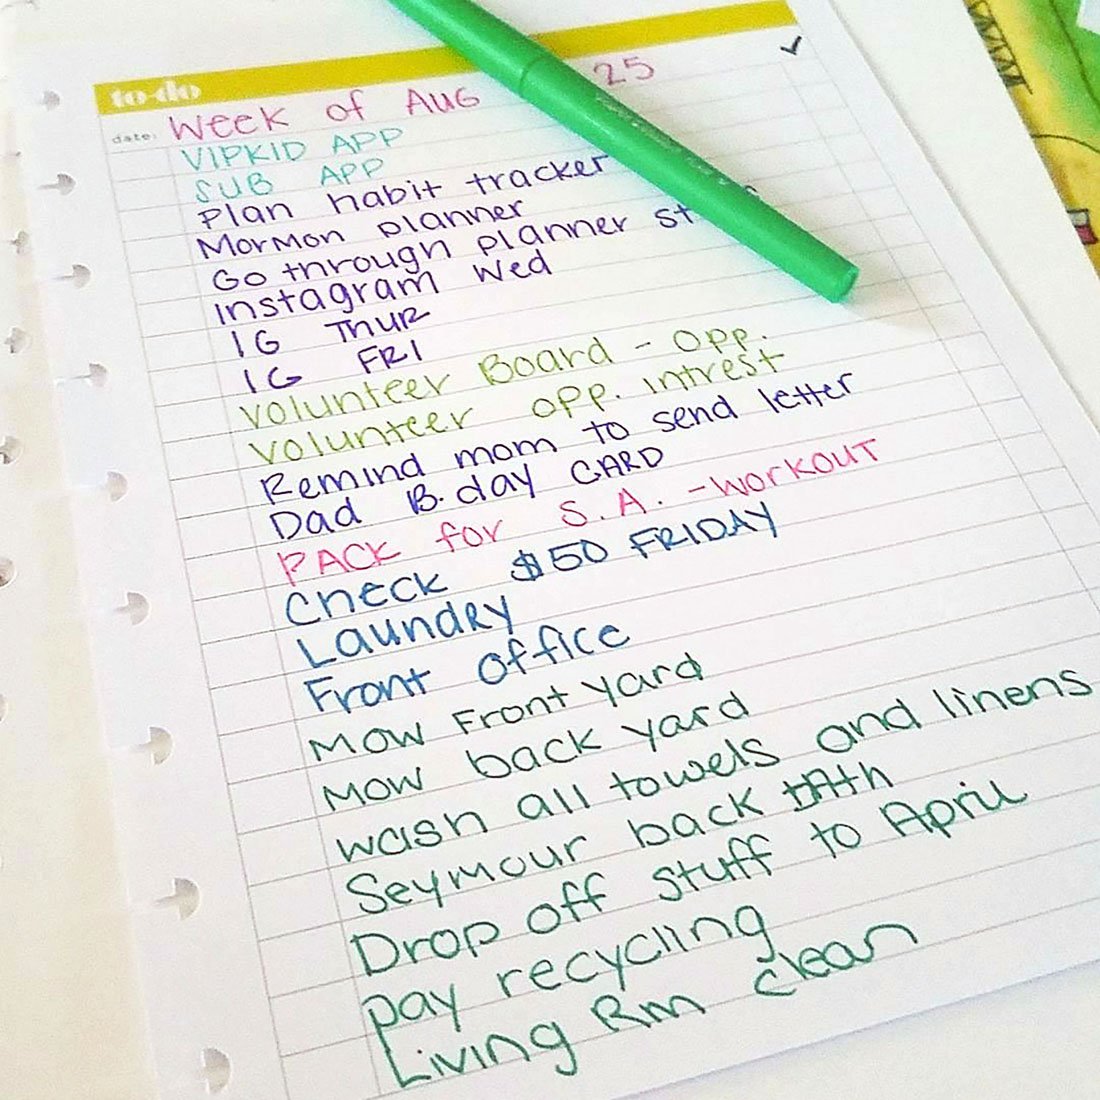 to-do
date: Week of Aug 25
VIPKID APP
SUB APP
Plan habit tracker
Mormon planner
Go through planner
Instagram Wed
IG Thur
IG FRI
Volunteer Board - Opp.
Volunteer opp. intrest
Remind mom to send letter
Dad B.day CARD
PACK for S.A. - workout
Check $50 FRIDAY
Laundry
Front office
Mow Front yard
Mow back yard
wash all towels and linens
Seymour back
Drop off stuff to April
pay recycling
Living Rm clean